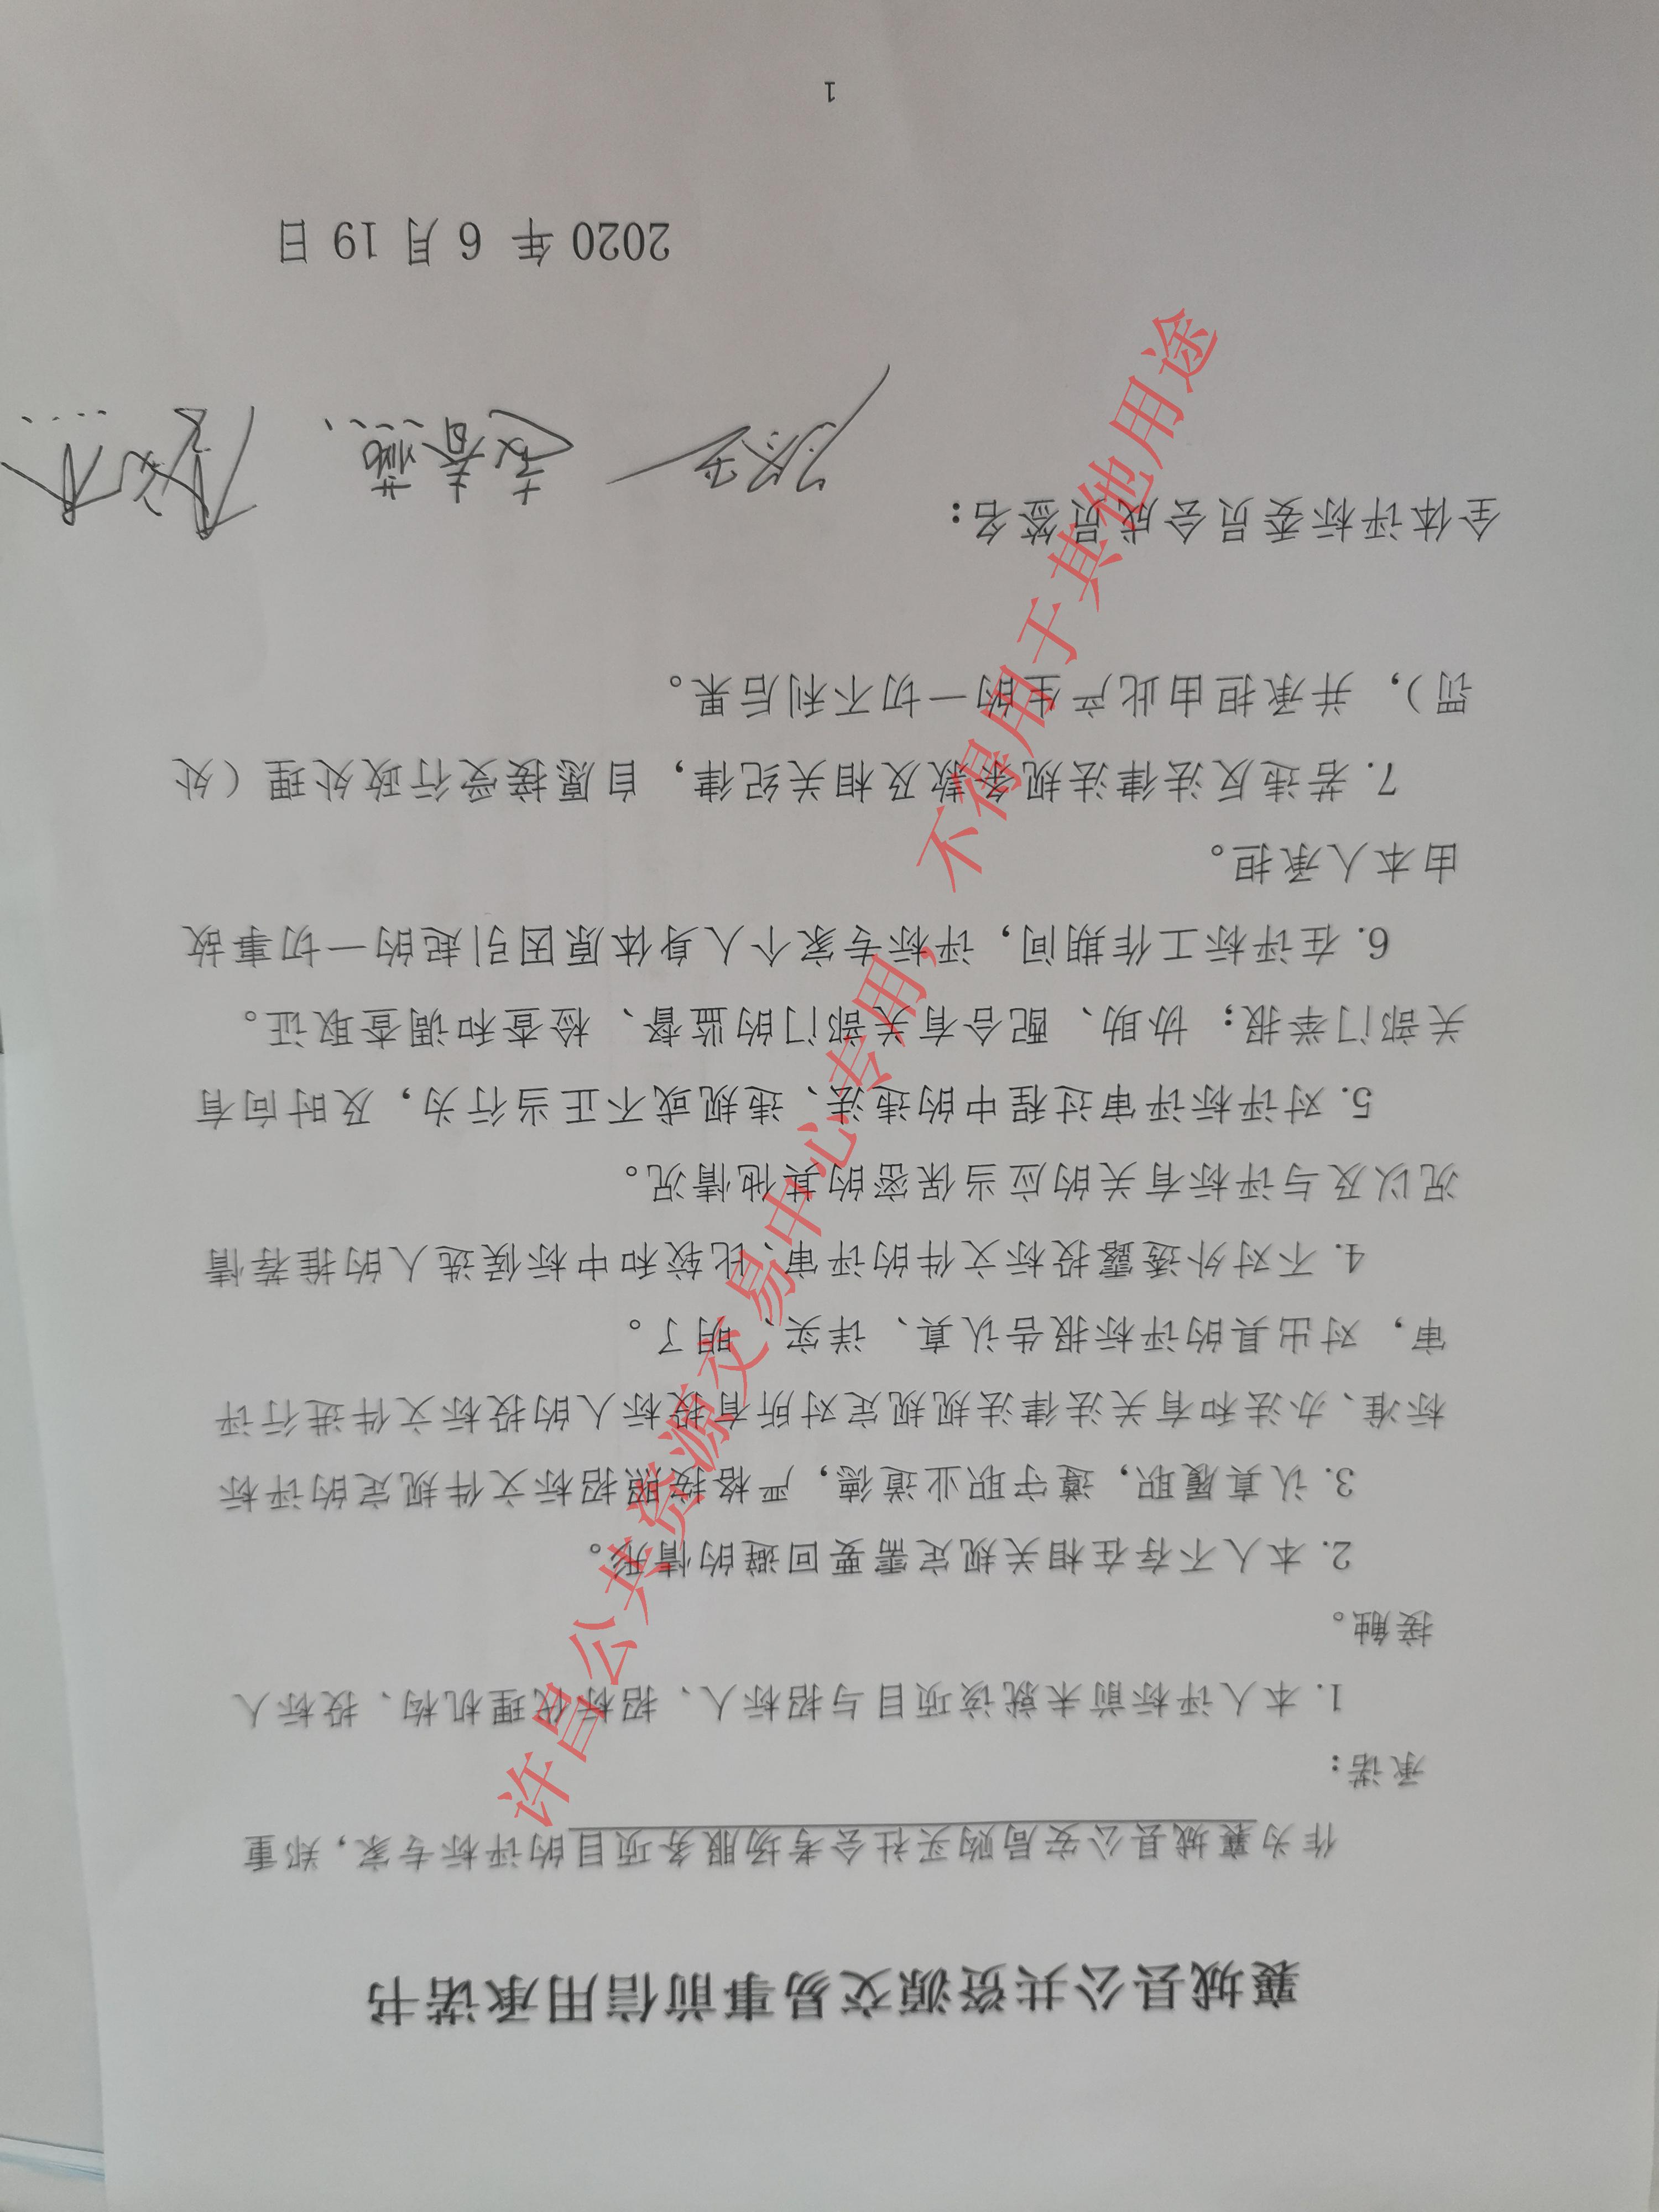 襄城县公共资源交易事前信用承诺书
作为襄城县公安局购买社会考场服务项目的评标专家，郑重
承诺：
1. 本人评标前未就该项目与招标人、招标代理机构、投标人
接触。
2. 本人不存在相关规定需要回避的情形。
3. 认真履职，遵守职业道德，严格按照招标文件规定的评标
标准、办法和有关法律法规规定对所有投标人的投标文件进行评
审，对出具的评标报告认真、详实、明了。
4. 不对外透露投标文件的评审、比较和中标候选人的推荐情
况以及与评标有关的应当保密的其他情况。
5. 对评标评审过程中的违法、违规或不正当行为，及时向有
关部门举报；协助、配合有关部门的监督、检查和调查取证。
6. 在评标工作期间，评标专家个人身体原因引起的一切事故
由本人承担。
7. 若违反法律法规条款及相关纪律，自愿接受行政处理（处
罚），并承担由此产生的一切不利后果。
全体评标委员会成员签名：
2020 年 6 月 19 日
1
许昌公共资源交易中心专用，不得用于其他用途